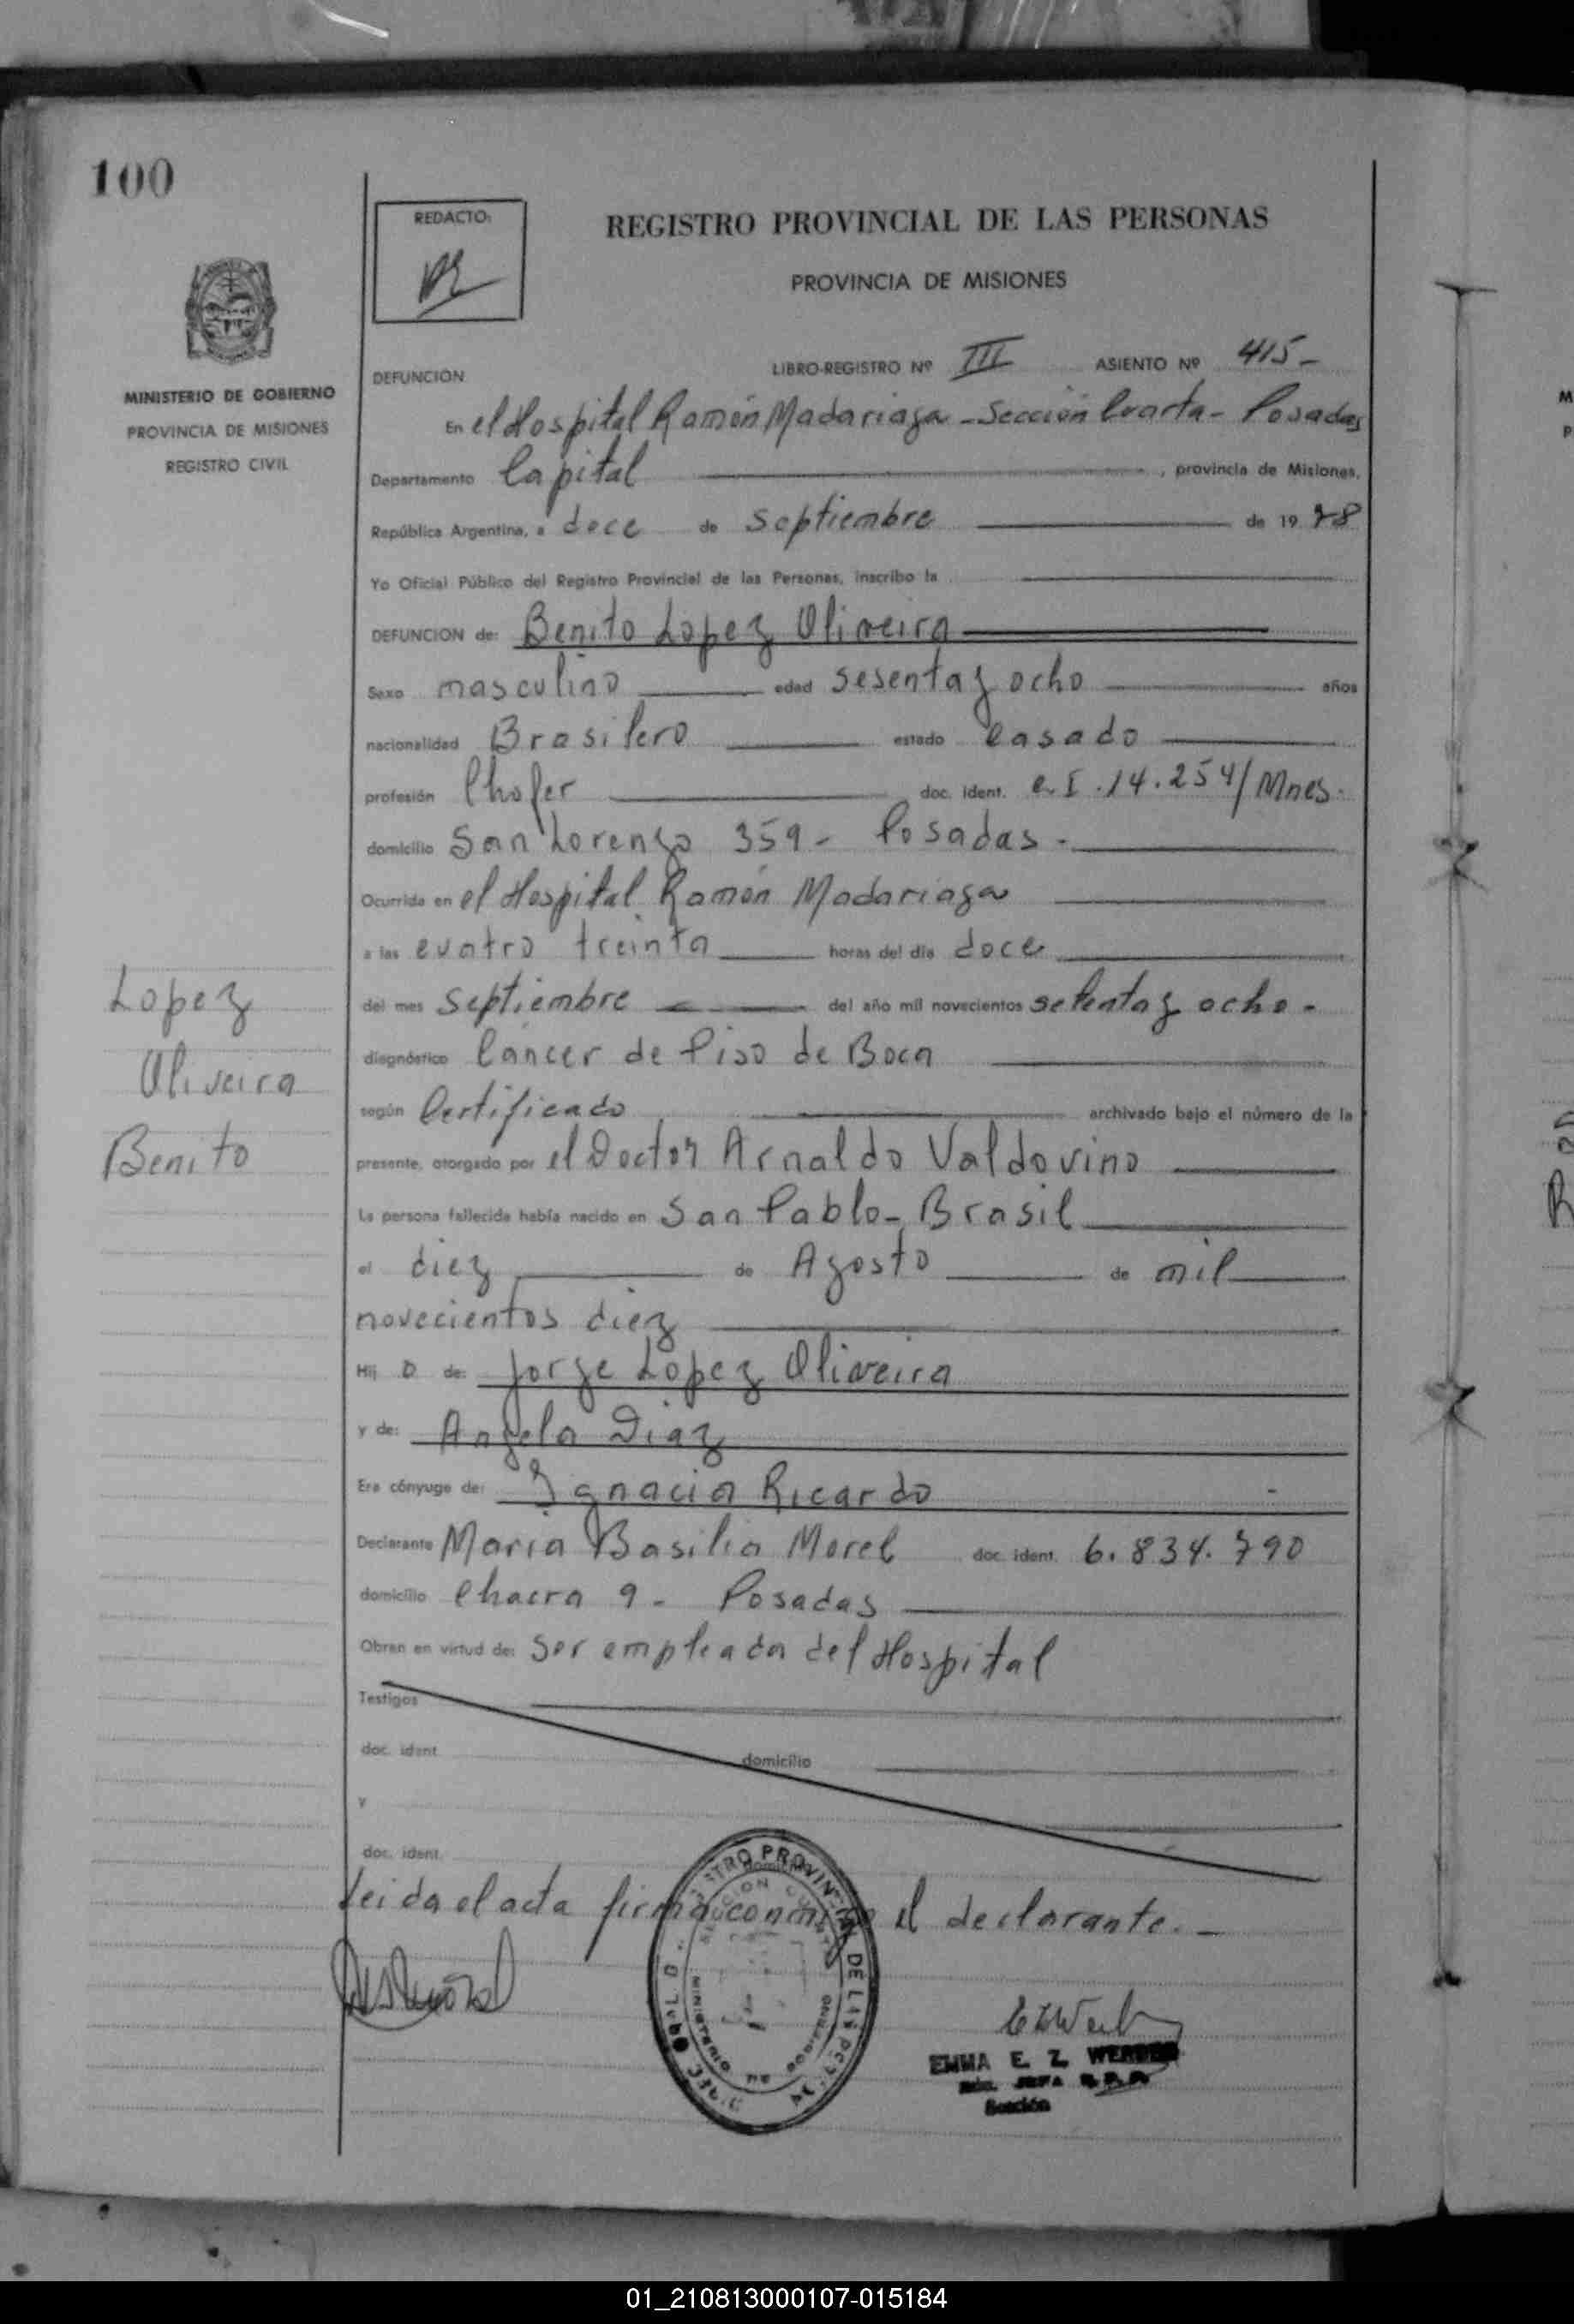 100
REDACTO:
REGISTRO PROVINCIAL DE LAS PERSONAS
PROVINCIA DE MISIONES
MINISTERIO DE GOBIERNO
PROVINCIA DE MISIONES
REGISTRO CIVIL
DEFUNCION
LIBRO-REGISTRO Nº III ASIENTO Nº 415-
En el Hospital Ramón Madariaga - Sección Cuarta - Posadas
Departamento Capital, provincia de Misiones,
República Argentina, a doce de septiembre de 1978
Yo Oficial Público del Registro Provincial de las Personas, inscribo la
DEFUNCION de: Benito Lopez Oliveira
Sexo masculino edad sesenta y ocho años
nacionalidad Brasilero estado Casado
profesión Chofer doc. ident. C.I. 14.254/Mnes.
domicilio San Lorenzo 359 - Posadas -
Ocurrida en el Hospital Ramón Madariaga
a las cuatro treinta horas del día doce
del mes septiembre del año mil novecientos setenta y ocho -
diagnóstico Cáncer de Piso de Boca
según Certificado archivado bajo el número de la
presente, otorgado por el Doctor Arnaldo Valdovino
La persona fallecida había nacido en San Pablo - Brasil
el diez de Agosto de mil
novecientos diez
Hij o de: Jorge Lopez Oliveira
y de: Angela Diaz
Era cónyuge de: Ignacia Ricardo
Declarante Maria Basilia Morel doc. ident. 6.834.790
domicilio Chacra 9 - Posadas
Obran en virtud de: Ser empleada del Hospital
Testigos
doc. ident. domicilio
y
doc. ident. domicilio
Leida el acta firma conmigo el declarante. -
Lopez
Oliveira
Benito
EMMA E. Z. WERNER
Sección
01_210813000107-015184